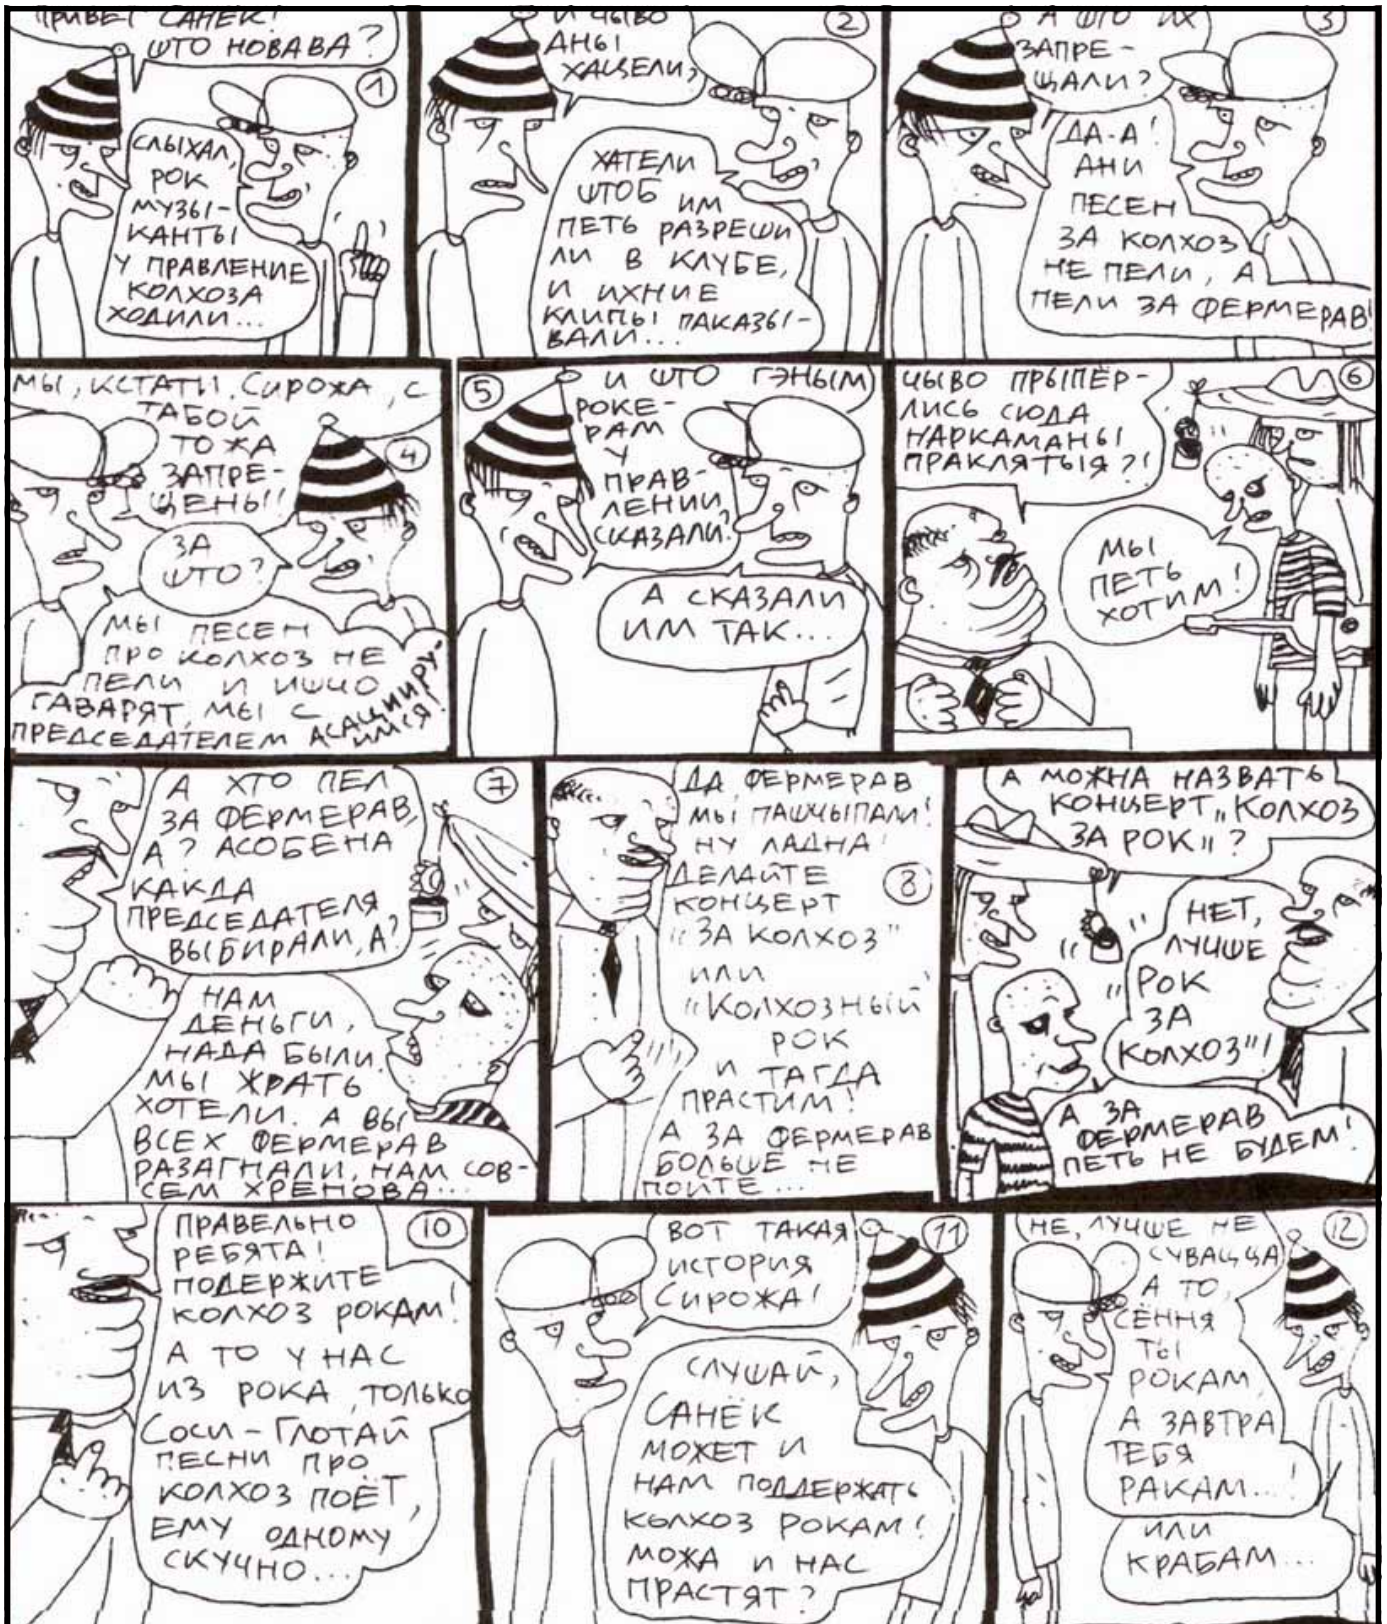 ПРИВЕТ САНЕК!
ШТО НОВАВА?
1
СЛЫХАЛ,
РОК
МУЗЫ-
КАНТЫ
У ПРАВЛЕНИЕ
КОЛХОЗА
ХОДИЛИ...
И ЧЫВО
АНЫ
ХАЦЕЛИ?
2
ХАТЕЛИ
ШТОБ ИМ
ПЕТЬ РАЗРЕШИ
ЛИ В КЛУБЕ,
И ИХНИЕ
КЛИПЫ ПАКАЗЫ-
ВАЛИ...
А ШТО ИХ
ЗАПРЕ-
ЩАЛИ?
3
ДА-А!
АНИ
ПЕСЕН
ЗА КОЛХОЗ
НЕ ПЕЛИ, А
ПЕЛИ ЗА ФЕРМЕРАВ!
МЫ, КСТАТИ, СИРОЖА, С
ТАБОЙ
ТОЖА
ЗАПРЕ-
ЩЕНЫ!!
4
ЗА
ШТО?
МЫ ПЕСЕН
ПРО КОЛХОЗ НЕ
ПЕЛИ И ИШЧО
ГАВАРЯТ, МЫ С
ПРЕДСЕДАТЕЛЕМ АСАЦИИРУ-
ИМСЯ!
5
И ШТО ГЭНЫМ
РОКЕ-
РАМ
У
ПРАВ-
ЛЕНИИ
СКАЗАЛИ?
А СКАЗАЛИ
ИМ ТАК...
ЧЫВО ПРЫПЁР-
ЛИСЬ СЮДА
НАРКАМАНЫ
ПРАКЛЯТЫЯ?!
6
МЫ
ПЕТЬ
ХОТИМ!
А ХТО ПЕЛ
ЗА ФЕРМЕРАВ,
А? АСОБЕНА
КАКДА
ПРЕДСЕДАТЕЛЯ
ВЫБИРАЛИ, А?
7
НАМ
ДЕНЬГИ,
НАДА БЫЛИ.
МЫ ЖРАТЬ
ХОТЕЛИ. А ВЫ
ВСЕХ ФЕРМЕРАВ
РАЗАГНАЛИ, НАМ СОВ-
СЕМ ХРЕНОВА...
ДА ФЕРМЕРАВ
МЫ ПАШЧЫПАЛИ!
НУ ЛАДНА!
ДЕЛАЙТЕ
КОНЦЕРТ
"ЗА КОЛХОЗ"
ИЛИ
"КОЛХОЗНЫЙ
РОК
И ТАГДА
ПРАСТИМ!
А ЗА ФЕРМЕРАВ
БОЛЬШЕ НЕ
ПОЙТЕ...
8
А МОЖНА НАЗВАТЬ
КОНЦЕРТ „КОЛХОЗ
ЗА РОК"?
НЕТ,
ЛУЧШЕ
"РОК
ЗА
КОЛХОЗ"!
А ЗА
ФЕРМЕРАВ
ПЕТЬ НЕ БУДЕМ!
ПРАВЕЛЬНО
РЕБЯТА!
ПОДЕРЖИТЕ
КОЛХОЗ РОКАМ!
А ТО У НАС
ИЗ РОКА ТОЛЬКО
СОСИ-ГЛОТАЙ
ПЕСНИ ПРО
КОЛХОЗ ПОЁТ,
ЕМУ ОДНОМУ
СКУЧНО...
10
ВОТ ТАКАЯ
ИСТОРИЯ
СИРОЖА!
11
СЛУШАЙ,
САНЁК
МОЖЕТ И
НАМ ПОДДЕРЖАТЬ
КОЛХОЗ РОКАМ!
МОЖА И НАС
ПРАСТЯТ?
НЕ, ЛУЧШЕ НЕ
СУВАЦЦА
А ТО,
СЁННЯ
ТЫ
РОКАМ,
А ЗАВТРА
ТЕБЯ
РАКАМ...!
12
ИЛИ
КРАБАМ...